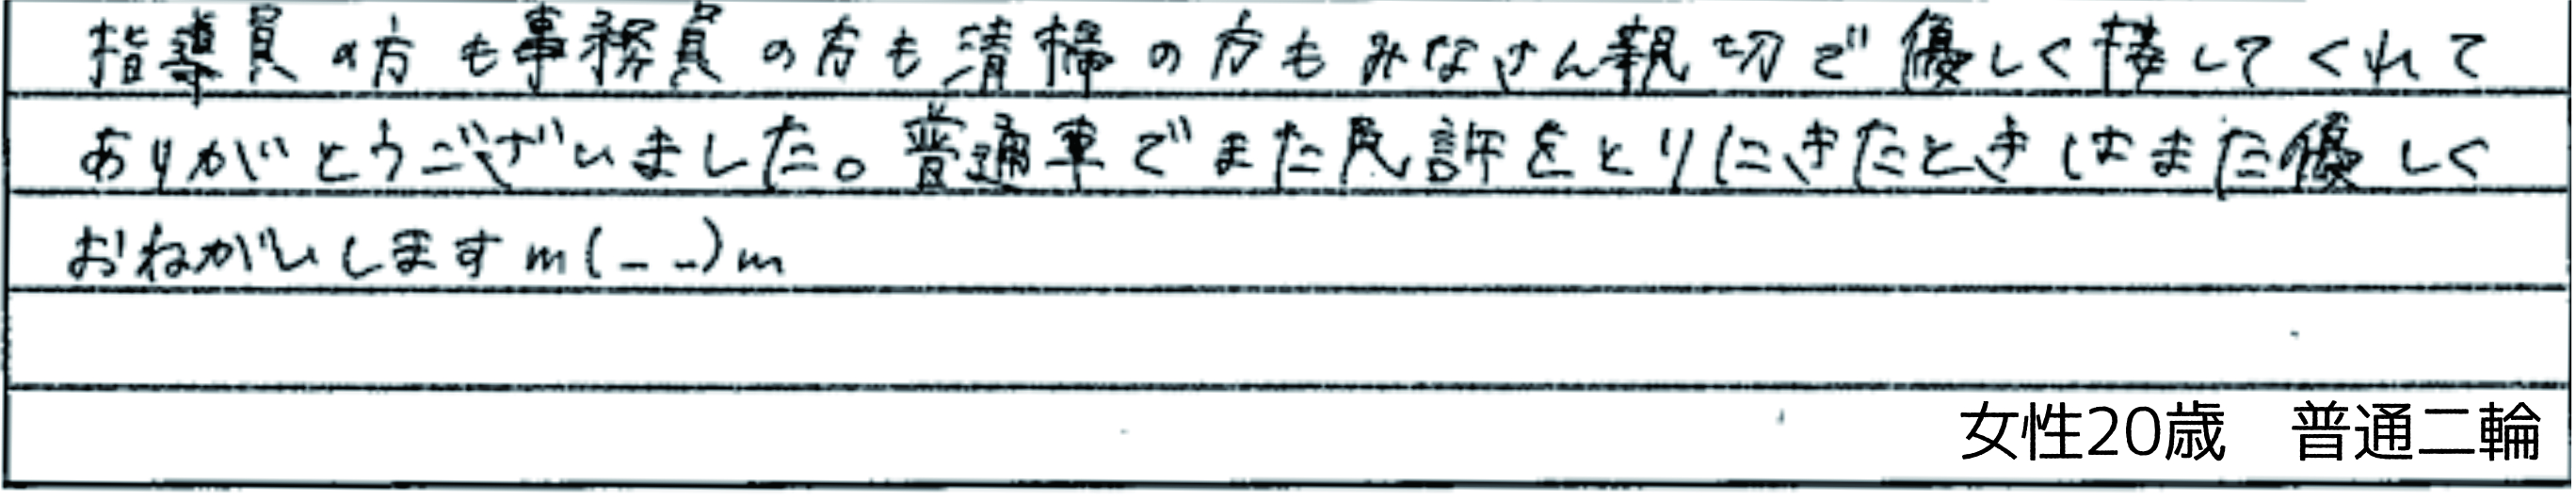 指導員の方も事務員の方も清掃の方もみなさん親切で優しく接してくれて
ありがとうございました。普通車でまた免許をとりにきたときはまた優しく
おねがいしますm(_ _)m
女性20歳　普通二輪